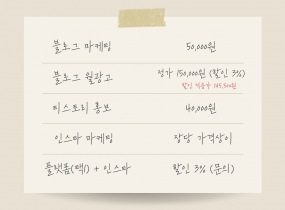 블로그 마케팅 50,000원
블로그 월광고 정가 150,000원 (할인 3%)
할인 적용가 145,500원
티스토리 홍보 40,000원
인스타 마케팅 장당 가격상이
플랫폼(택1) + 인스타 할인 3% (문의)